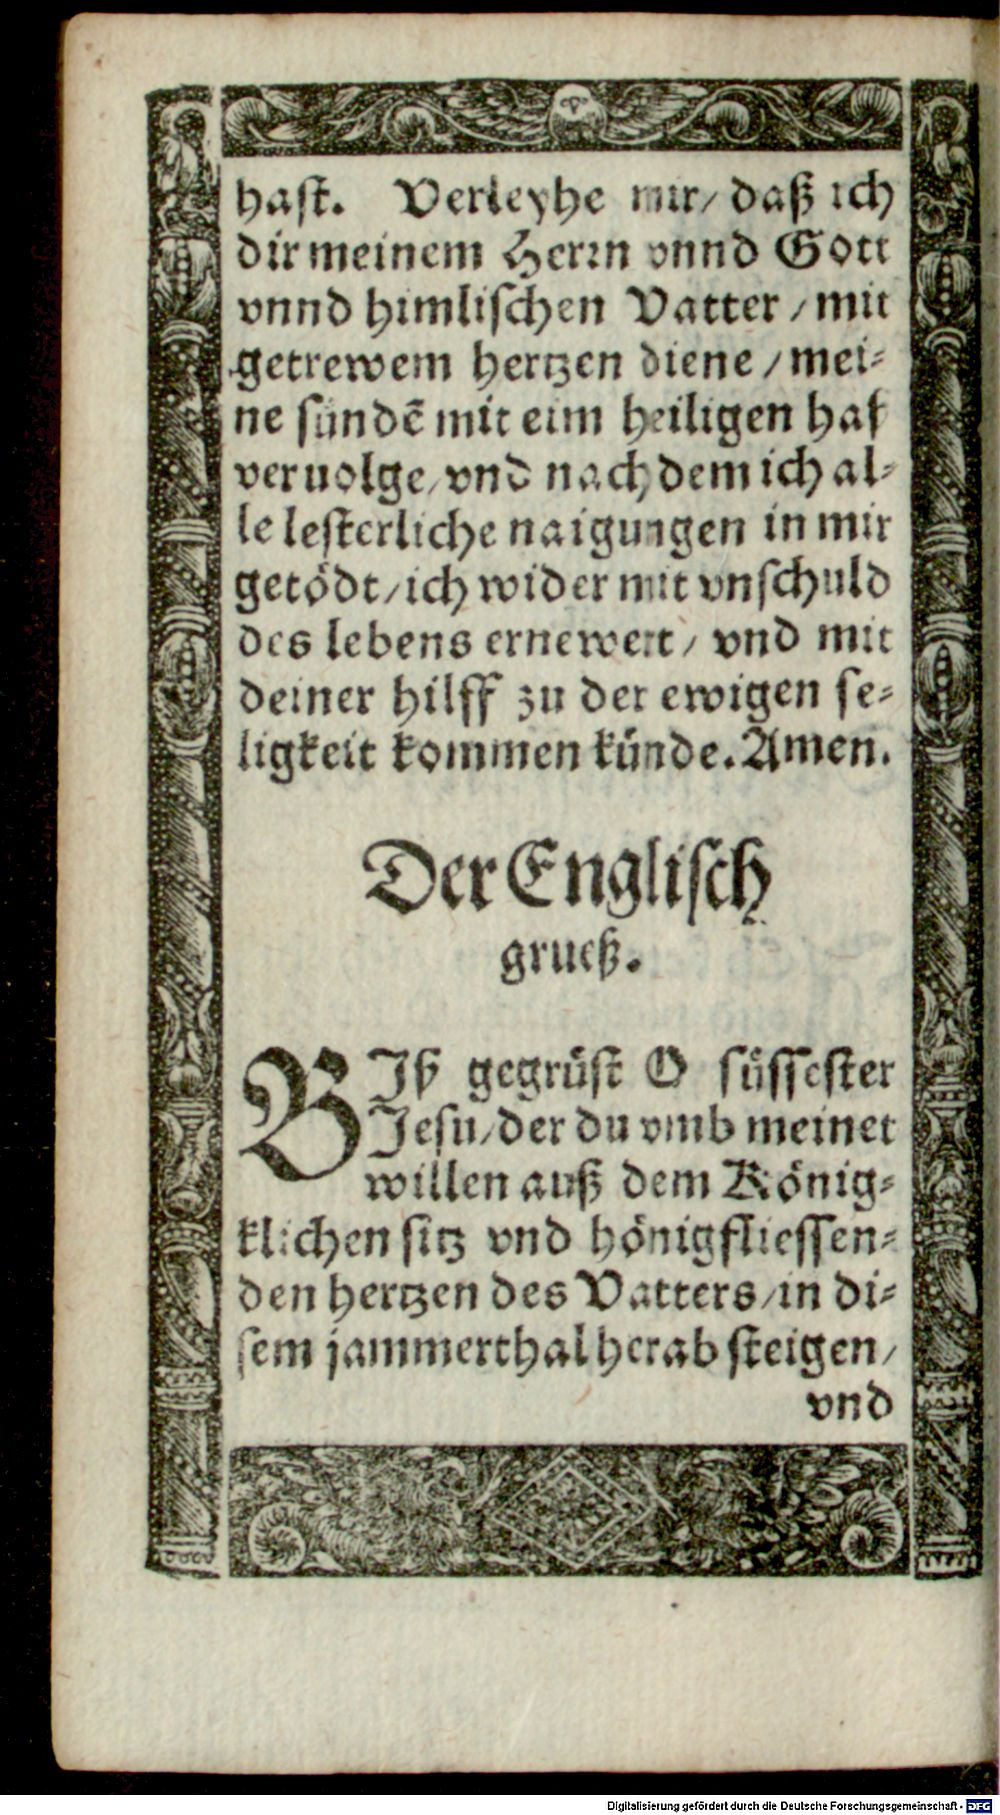 hast. Verleyhe mir/ daß ich
dir meinem Herrn vnnd Gott
vnnd himlischen Vatter / mit
getrewem hertzen diene / mei-
ne sündē mit eim heiligen haß
veruolge/ vnd nach dem ich al-
le lesterliche naigungen in mir
getödt/ ich wider mit vnschuld
des lebens ernewert/ vnd mit
deiner hilff zu der ewigen se-
ligkeit kommen künde. Amen.
Der Englisch
grueß.
BIß gegrüst O süssester
Jesu/ der du vmb meinet
willen auß dem König-
klichen sitz vnd hönigfliessen-
den hertzen des Vatters/ in di-
sem jammerthal herab steigen/
vnd
Digitalisierung gefördert durch die Deutsche Forschungsgemeinschaft - DFG